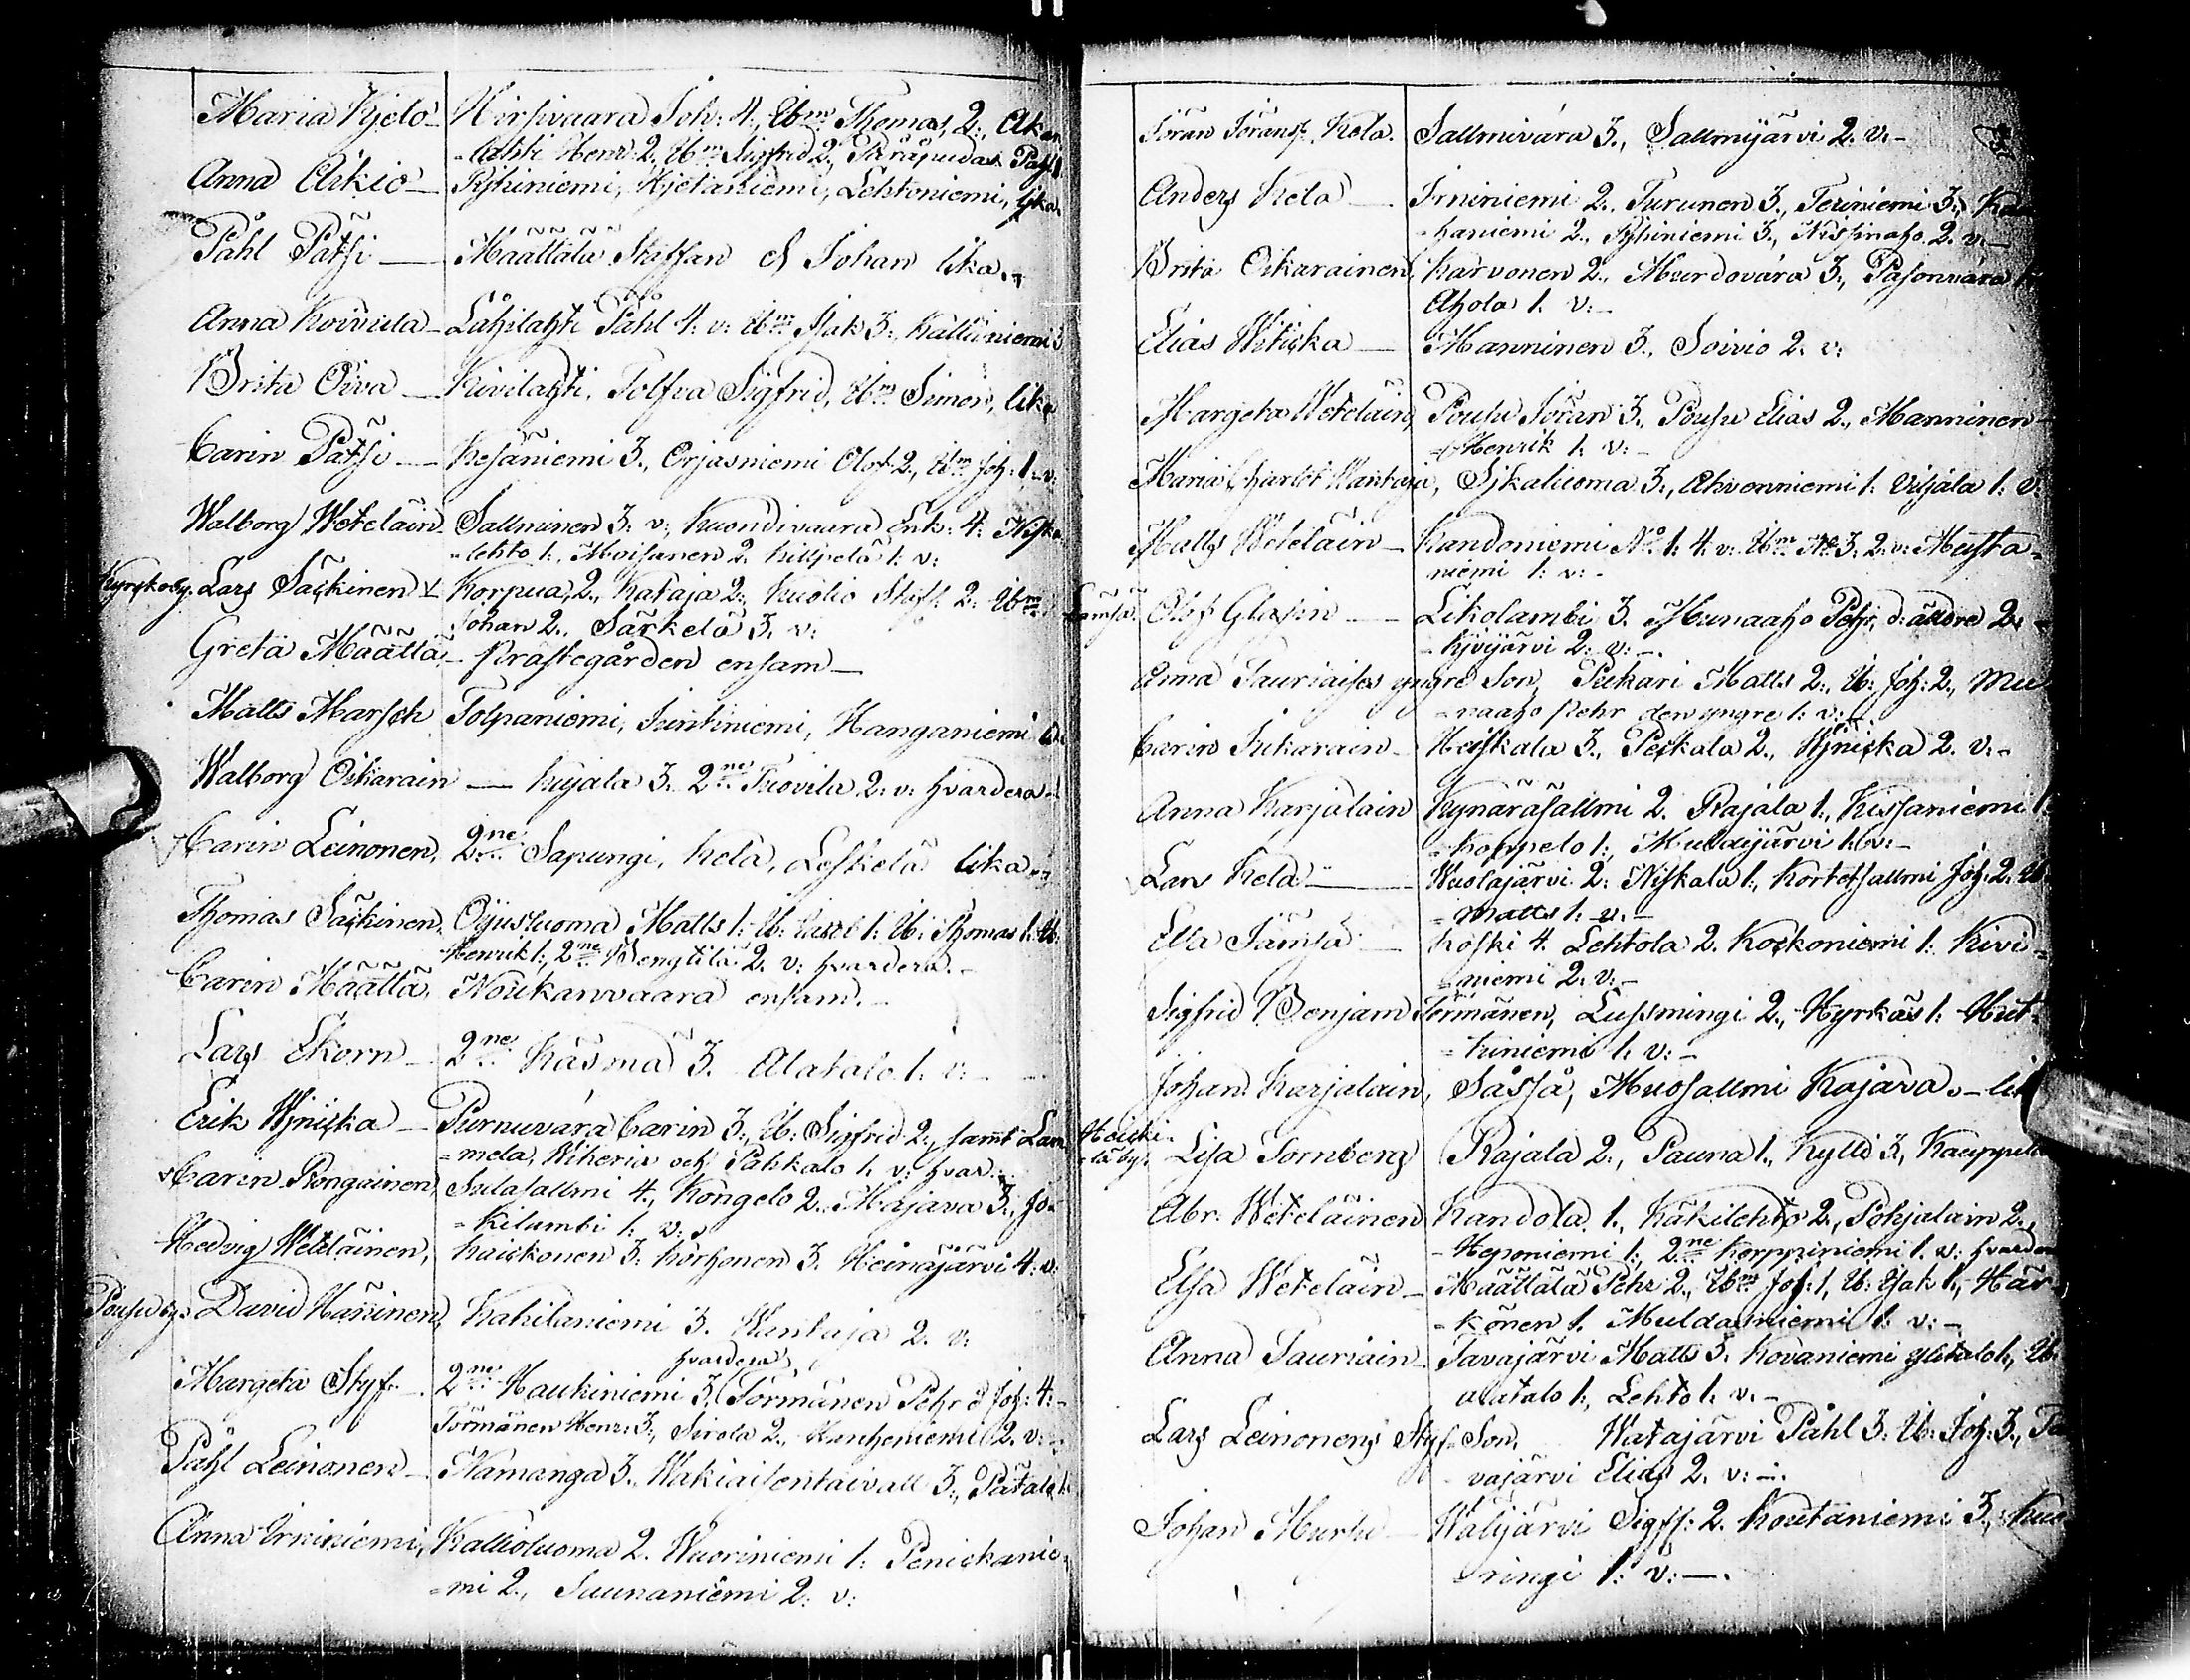 Maria Kjelo - Hirsivaara Joh: 4., Ibm Thomas 2., Akon
=lahti Henr: 2., Ibm Sigfrid 2., Påhl
Anna Erkio - Pyhiniemi, Kjetäniemi, Lehtoniemi, lika
Påhl Pätsi - Määttälä Staffan & Johan lika.
Anna Koivula - Låhilahti Påhl 4: v: Ibm Isak 3., Kallioniemi 3
Brita Oiva - Kivilahti, Tolfva Sigfrid, Ibm Simon, lika
Carin Pätsi - Kesäniemi 3., Orjasniemi Olof 2., Ibm Joh: 1. v:
Walborg Wetelain - Sallminen 3: v: Kuondivaara Enk: 4: Niska
=lehto 1., Moisanen 2. Killpelä 1: v:
Kyrckoby. Lars Säckinen - Korpua 2., Kataja 2., Kuolio Staff: 2: Ibm
Johan 2., Särkelä 3. v:
Greta Määttä - Prästegården ensam -
Matts Marsch Tolpaniemi, Juntiniemi, Hanganiemi
Walborg Oikarain - Kujala 3. 2ne Tuovila 2: v: hvardera
Carin Leinonen, 2ne Sapungi, Kela, Leskelä lika
Thomas Säckinen, Oijusluoma Matts 1: Ib: 1: Ib: Thomas 1: Ib:
Henrik 1., 2ne Bengtilä 2. v: hvardera. -
Carin Määttä, Noukanvaara ensam. -
Lars Ekorn - 2ne Käsmä 3. Alatalo 1. v: -
Erik Wjnicka - Purnuvara Carin 3., Ib: Sigfrid 2., samt Lam
=mela, Wikeria och Pahkalo 1. v: hvar.
Carin Rongainen, Sulasallmi 4., Kongelo 2., Majava 3., Jo=
=kilumbi 1: v:
Hedvig Wetelainen, Kaickonen 3: Korhonen 3. Heinäjärvi 4: v:
Pousuby. David Hänninen, Kakilaniemi 3. Kuntaja 2. v:
hvardera
Margeta Styf - 2ne Haukiniemi 3. Törmänen Pehr & Joh: 4: -
Törmänen Henr: 3., Sirola 2., 2. v:
Påhl Leinonen - Hamanga 3., Wakiaisentaivall 3., Patala 1:
Anna Irniniemi, Kallioluoma 2. Wuoriniemi 1: Penickanie=
=mi 2., Saunaniemi 2: v:
Jöran Jöransf. Kela. Sallmivara 3., Sallmijärvi 2. v: -
Anders Kela - Irniniemi 2. Turunen 3., Teriniemi 3.,
=haniemi 2., Pyhiniemi 3., Nissinaho 2. v: -
Brita Oikarainen, Karvonen 2., Murdovara 3., Pasonvara 1.
Ahola 1. v: -
Elias Witicka - Manninen 3., Soivio 2. v:
Margeta Wetelain, Pousu Jöran 3., Pousu Elias 2., Manninen
=Henrik 1: v: -
Maria Charlot Kantaja, Sjkaluoma 3., Ahvenniemi 1. Viljala 1: v:
Matts Wetelain - Kandoniemi No 1: 4. v: Ibm No 3. 2. v: Musta=
niemi 1: v: -
Jamsä. Olof Glasin - Likolambi 3. Munaaho Pehr, d: äldre 2:
=Kjvijärvi 2. v: -
Anna Tauriaises yngre Son, Pukari Matts 2., Ib: Joh: 2., Mu
=naaho Pehr den yngre 1: v: -
Carin Jukarain - Heiskala 3., Peckala 2., Wjnicka 2. v: -
Anna Karjalain Kynäräsallmi 2. Rajala 1., Kissaniemi 1:
=Koppelo 1., Muldijärvi 1. v: -
Lars Kela - Wuolajärvi 2: Niskala 1., Kortetsallmi Joh: 2. Ib
=Matts 1. v: -
Elsa Jämsä - Koski 4. Lehtola 2. Kockoniemi 1. Kivi=
=niemi 2. v: -
Sigfrid Benjam Törmänen, Lussmingi 2., Hyrkäs 1: Hut=
=tuniemi 1. v: -
Johan Karjalain, Såsså, Muosallmi Kajava. - lik
Heicki=
=lä by. Lisa Tornberg Rajala 2., Pauna 1., Kylli 3.,
Abr. Wetelainen Kandola 1., Käkilehto 2., Pohjalain 2.,
=Heponiemi 1., 2ne Korppiniemi 1. v: hvardera
Elsa Wetelain - Määttälä Pehr 2., Ibm Joh: 1., Ib: Isak 1., Här=
=könen 1. Muldasniemi 1: v: -
Anna Tauriain - Tavajärvi Matts 3. Kovaniemi ylitalo 1., Ib
alatalo 1., Lehto 1: v: -
Lars Leinonens Styf Son, Watajärvi Påhl 3: Ib: Joh: 3., Ta
vajärvi Elias 2. v: -
Johan Murtu - Walijärvi Sigf: 2. Koutaniemi 3.,
ringi 1: v: -